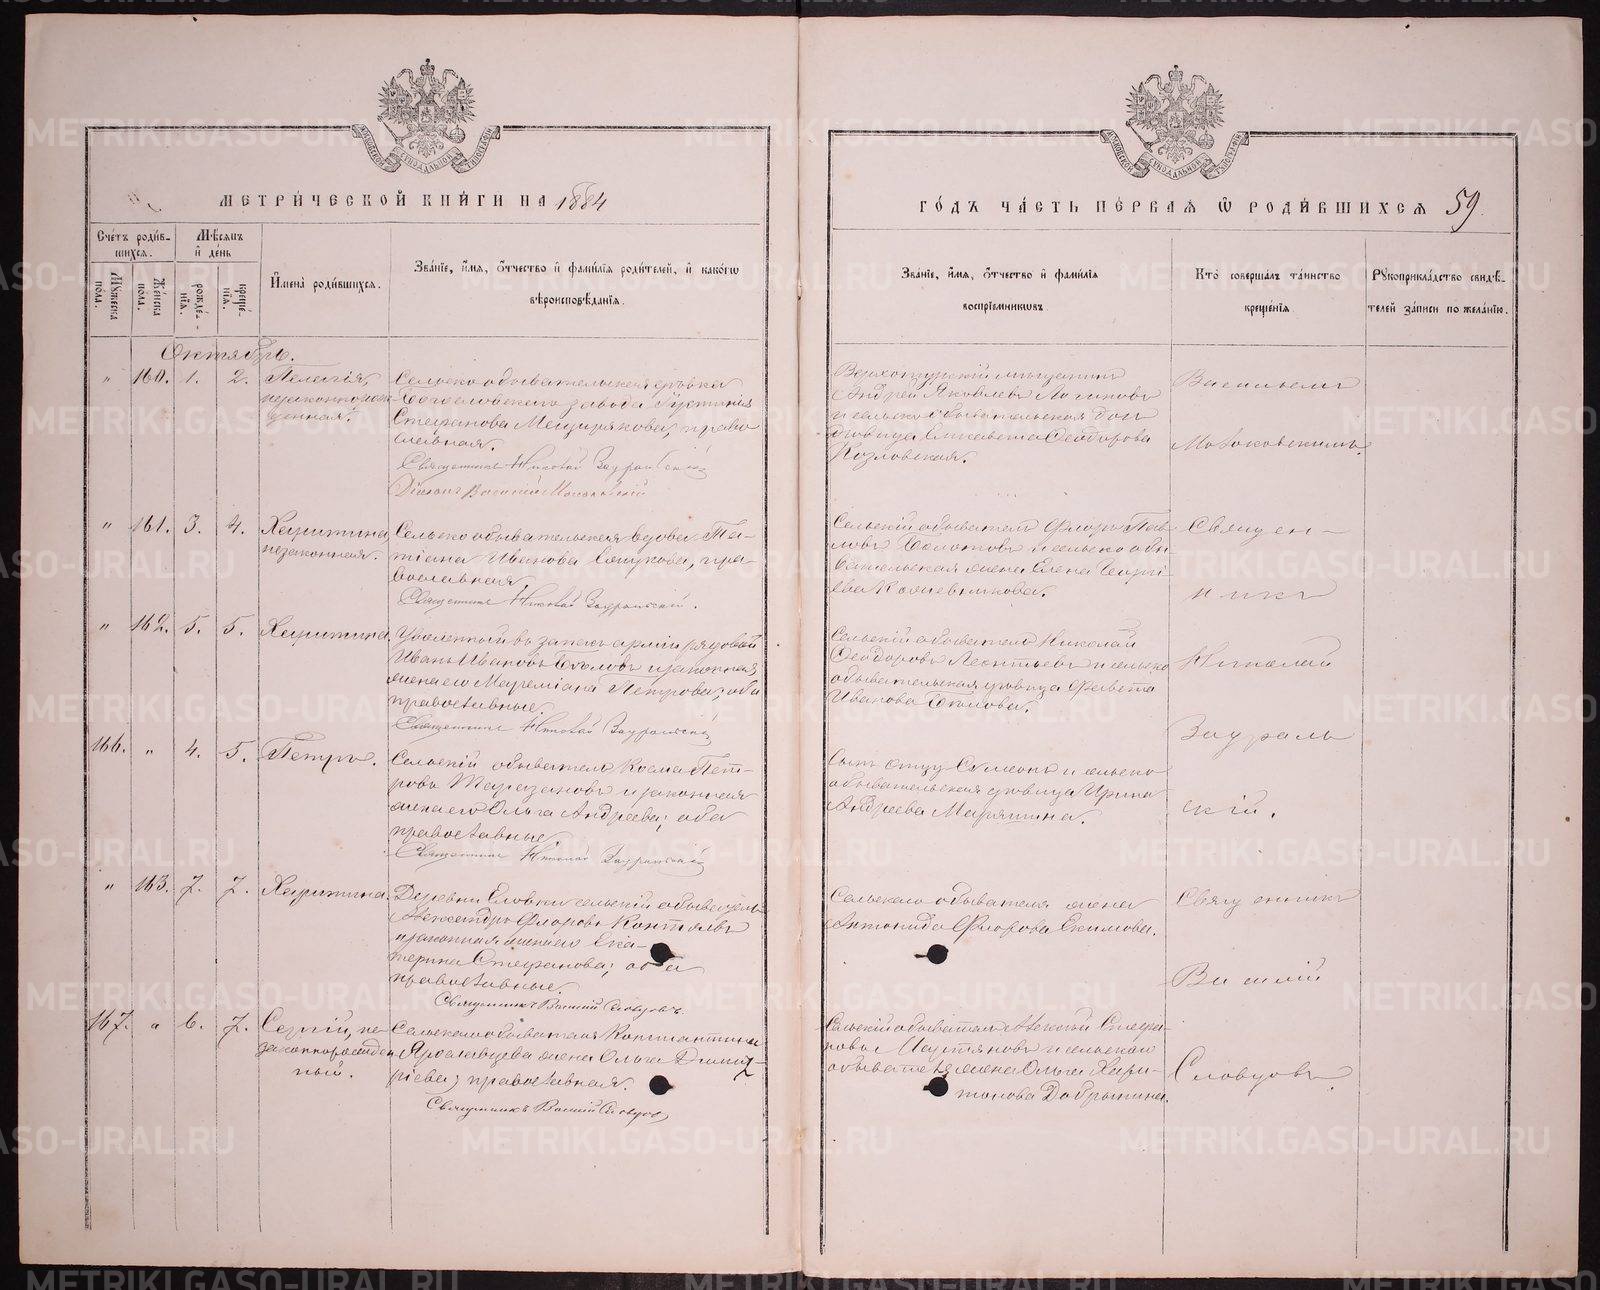 МЕТРИ́ЧЕСКОЙ КНИ́ГИ НА 1884
ГО́ДЪ ЧА́СТЬ ПЕ́РВАЯ Ѡ РОДИ́ВШИХСЯ 59
Сче́тъ роди́в-
шихся.
Мужеска
по́ла.
Женска
по́ла.
Мѣ́сяцъ
и де́нь
рожде́-
нія.
креще́-
нія.
Имена̀ роди́вшихся.
Зва́нїе, и́мя, о́тчество и фами́лїя роди́телей, и како́гѡ
вѣроисповѣ́данїя.
Зва́нїе, и́мя, о́тчество и фами́лїя
воспрїе́мниковъ.
Кто̀ соверша́лъ та́инство
креще́нїя
Рукоприкла́дство свидѣ́-
телей за́писи по жела́нїю.
Октябрь.
" 160. 1. 2. Пелагія,
незаконнорож-
денная.
Сельскообывательская дѣвка
Богословскаго завода Іустинія
Стефанова Мещерякова, право
славная.
Священникъ Николай Зауральскій
Діаконъ Василій
Верхотурскій мѣщанинъ
Андрей Яковлевъ Логиновъ
и сельскообывательская дочь
дѣвица Елисавета Ѳеодорова
Козловская.
Васильемъ
" 161. 3. 4. Харитина
незаконная.
Сельскообывательская вдова Та-
тіана Иванова, пра-
вославная
Священникъ Николай Зауральскій.
Сельскій обыватель Флоръ Пав
ловъ Болотовъ и сельскообы
вательская жена Елена Георгі
ева
Священ-
никъ
" 162. 5. 5. Харитина.
Уволенный въ запасъ арміи рядовой
Иванъ Ивановъ и законная
жена его Мареміана Петрова; оба
православные.
Священникъ Николай Зауральскій
Сельскій обыватель Николай
Ѳеодоровъ Леонтьевъ и сельско
обывательская дѣвица
Иванова
Николай
Заураль
скій.
166. " 4. 5. Петръ.
Сельскій обыватель Косма Пет-
ровъ и законная
жена его Ольга Андреева; оба
православные.
Священникъ Николай Зауральскій
Сынъ отцу Симеонъ и сельско
обывательская дѣвица Ирина
Андреева
" 163. 7. 7. Харитина.
Деревни Еловки сельскій обыватель
Александръ Флоровъ
и законная жена его Ека-
терина Стефанова; оба
православные.
Священникъ Василій Словцовъ.
Сельскаго обывателя жена
Антонида Флорова Екимова.
Священникъ
Василій
Словцовъ.
167. " 6. 7. Сергій, не-
законнорожден
ный.
Сельскаго обывателя Константина
Ярославцева жена Ольга Димит-
ріева; православная.
Священникъ Василій Словцовъ
Сельскій обыватель Алексѣй Стефа-
новъ и сельскаго
обывателя жена Ольга Хари-
тонова Добрынина.